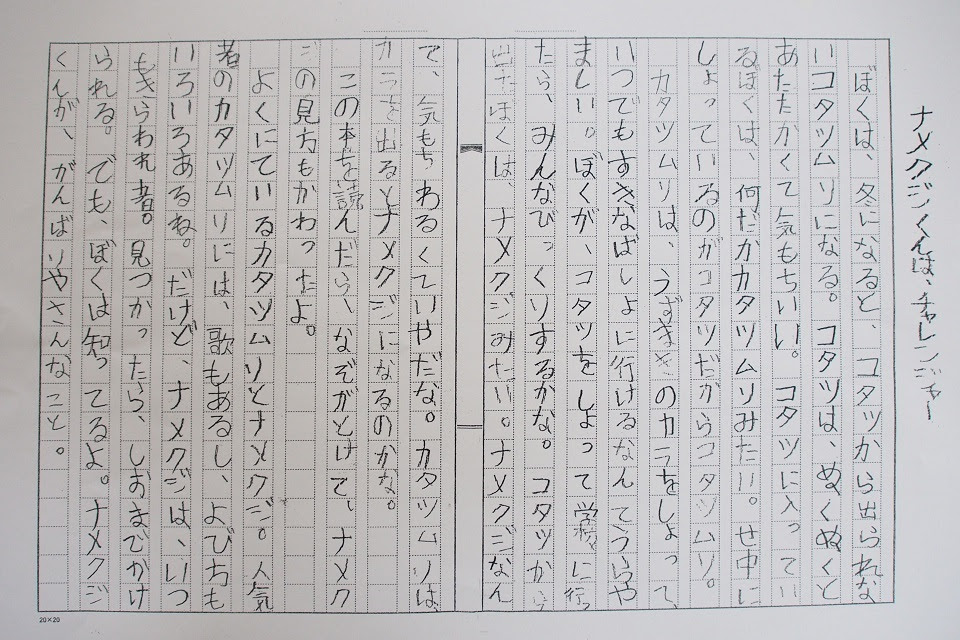 ナメクジくんは、チャレンジャー
ぼくは、冬になると、コタツから出られな
いコタツムリになる。コタツは、ぬくぬくと
あたたかくて気もちいい。コタツに入ってい
るぼくは、何だかカタツムリみたい。せ中に
しょっているのがコタツだからコタツムリ。
カタツムリは、うずまきのカラをしょって、
いつでもすきなばしょに行けるなんてうらや
ましい。ぼくが、コタツをしょって学校に行っ
たら、みんなびっくりするかな。コタツから
出たぼくは、ナメクジみたい。ナメクジなん
て、気もちわるくていやだな。カタツムリは、
カラを出るとナメクジになるのかな。
この本を読んだら、なぞがとけて、ナメク
ジの見方もかわったよ。
よくにているカタツムリとナメクジ。人気
者のカタツムリには、歌もあるし、よび方も
いろいろあるね。だけど、ナメクジは、いつ
もきらわれ者。見つかったら、しおまでかけ
られる。でも、ぼくは知ってるよ。ナメクジ
くんが、がんばりやさんなこと。
20×20